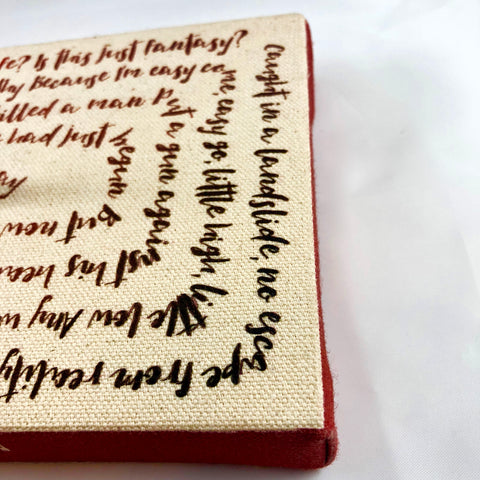 fe? Is this just fantasy?
Caught in a landslide, no esca
pe from reality
Because I'm easy co
me, easy go, little high, li
ttle low Any w
illed a man p
ut a gun again
st his hea
had just
begun
But now